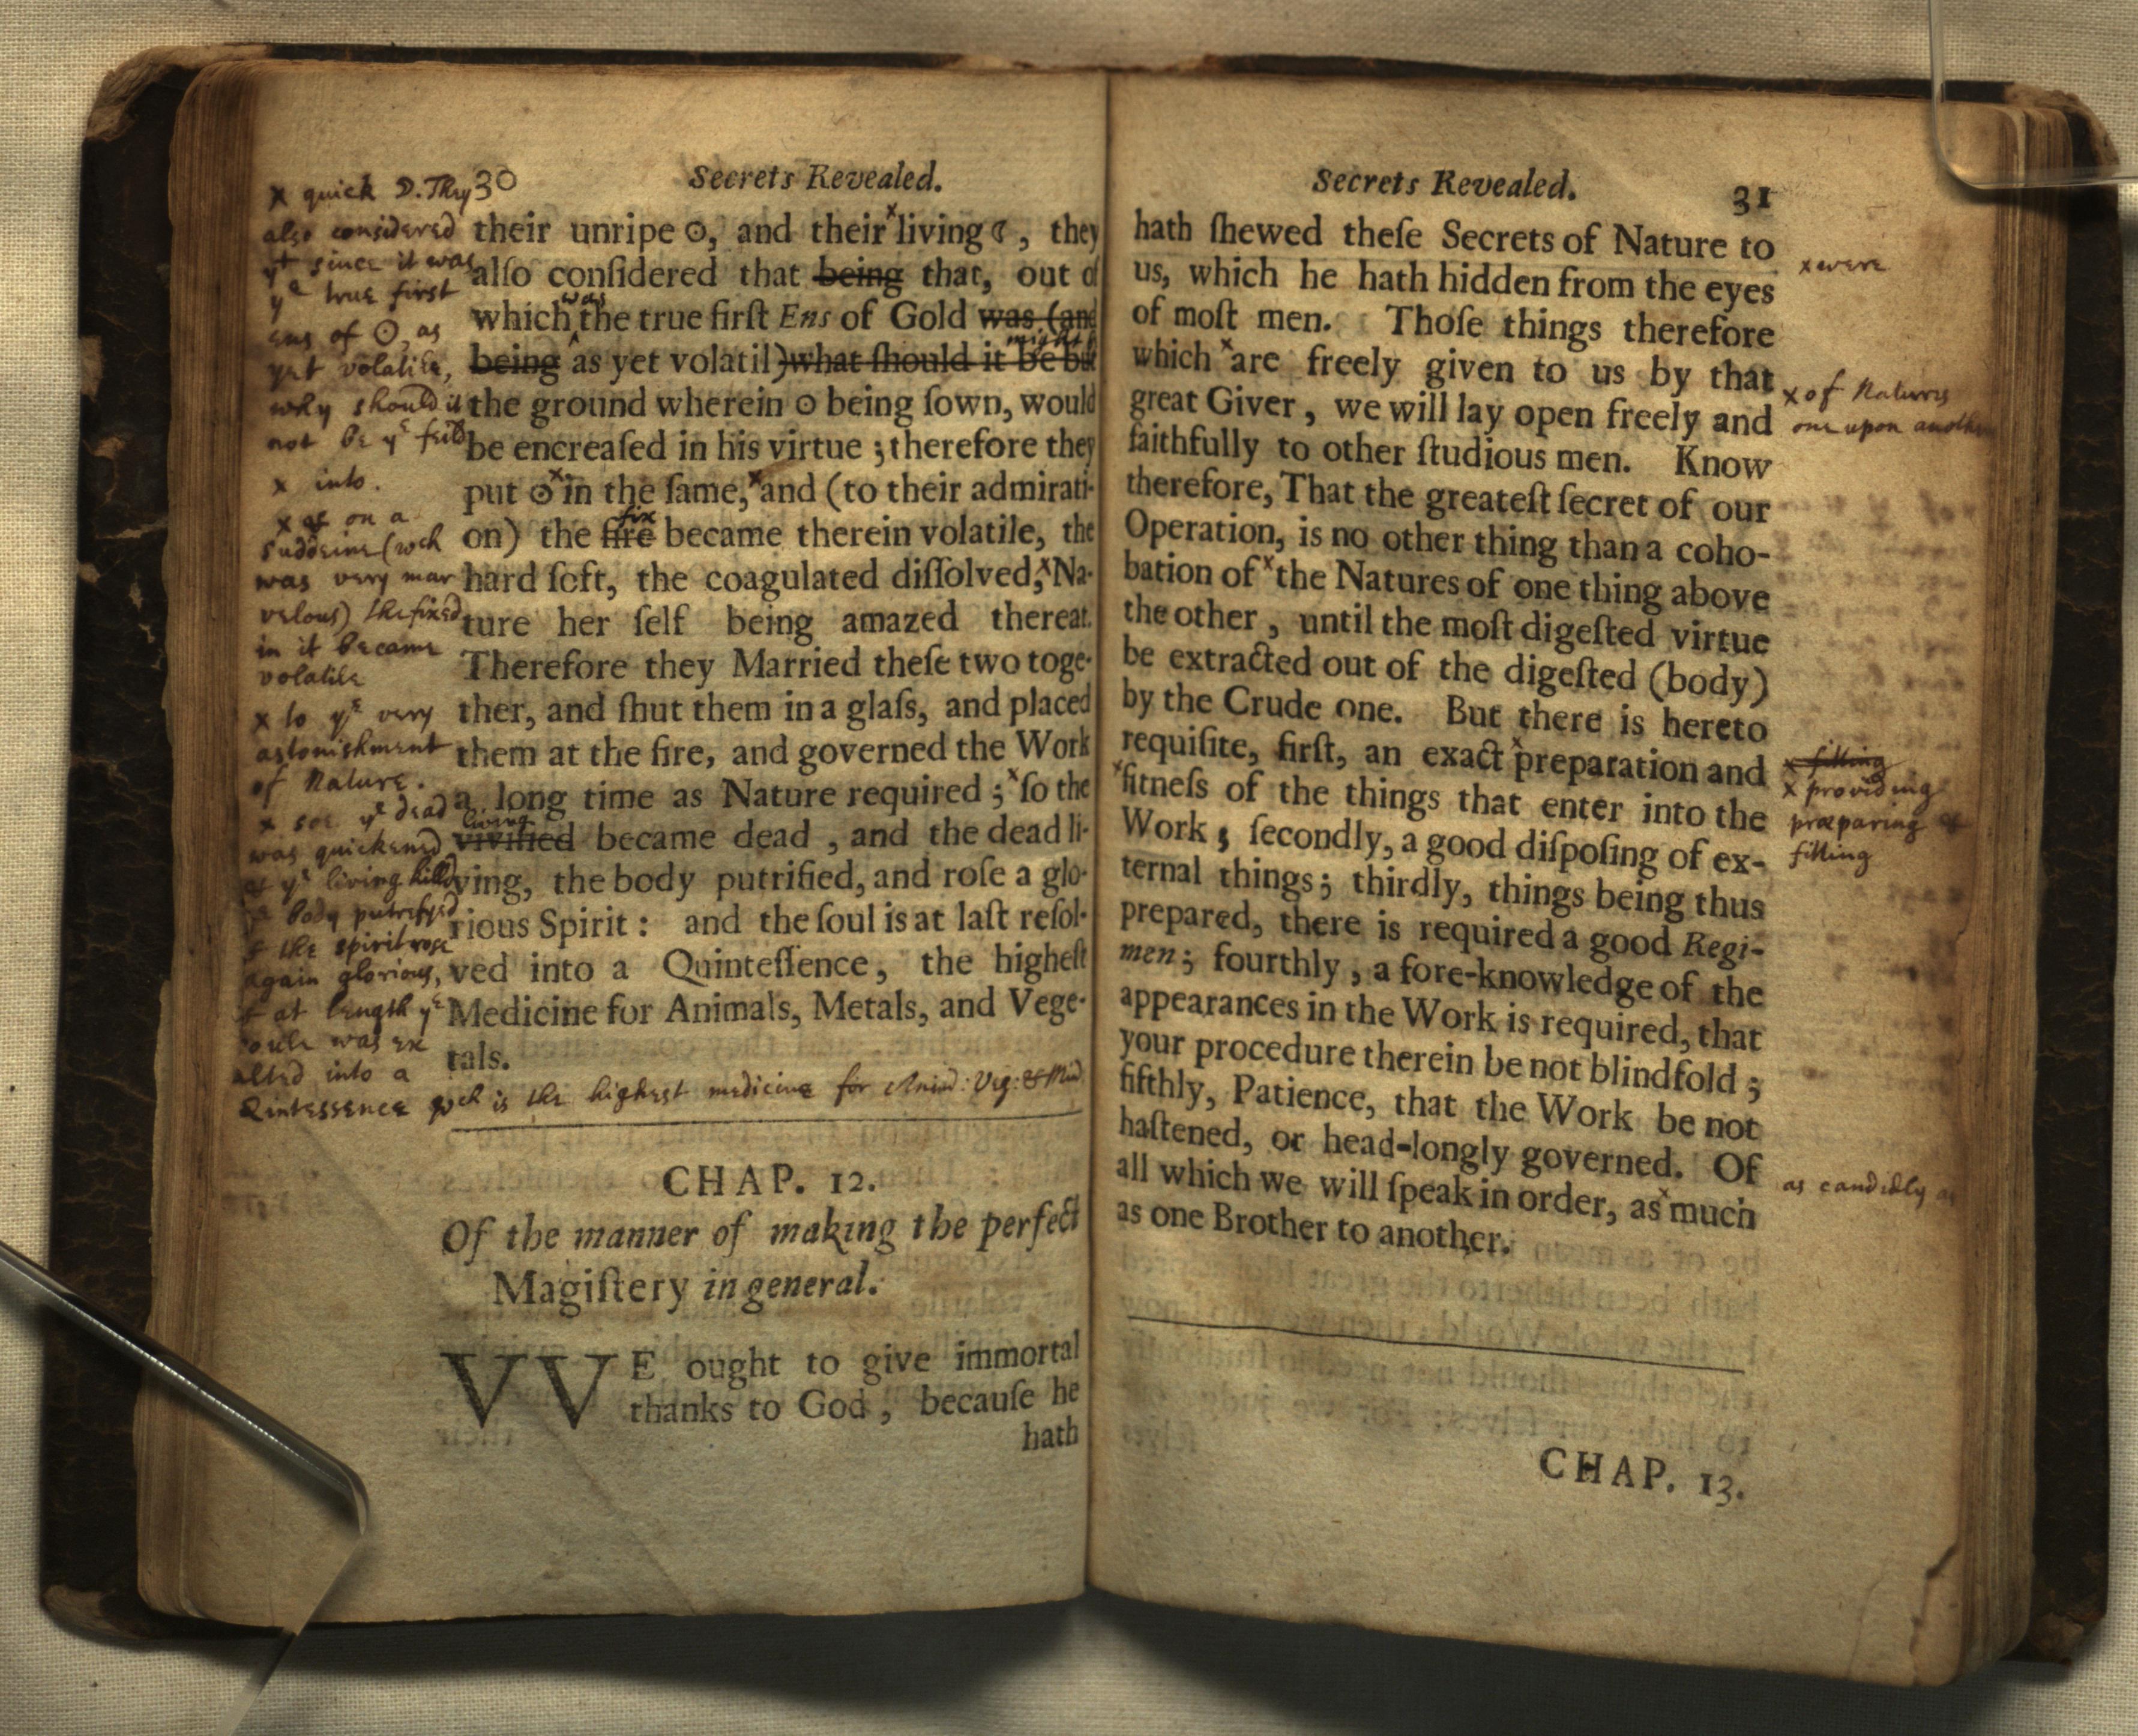 30 Secrets Revealed.
their unripe ☉, and their x living ☾, they
alſo conſidered that being that, out of
was
which ‸ the true firſt Ens of Gold was (and
might
being as yet volatil) what ſhould it be but
the ground wherein ☉ being ſown, would
be encreaſed in his virtue; therefore they
put ☉ x in the ſame, x and (to their admirati-
fix
on) the fire became therein volatile, the
hard ſoft, the coagulated diſſolved, x Na-
ture her ſelf being amazed thereat.
Therefore they Married theſe two toge-
ther, and ſhut them in a glaſs, and placed
them at the fire, and governed the Work
a long time as Nature required; x ſo the
living
vivified became dead, and the dead li-
ving, the body putrified, and roſe a glo-
rious Spirit: and the ſoul is at laſt reſol-
ved into a Quinteſſence, the higheſt
Medicine for Animals, Metals, and Vege-
tals.
x quick D. They
also considered
yt since it was
ye true first
ens of ☉, as
yet volatile,
why should it
not be ye feild
x into.
x & on a
suddeine (wch
was very mar
velous) the fixed
in it became
volatile
x to ye very
astonishment
of Nature.
x soe ye dead
was quickened
& ye living killed
ye body putrefyed
& the spirit rose
again glorious,
& at length ye
soule was ex
alted into a
Quintessence wch is the highest medicine for Anim: Veg: & Min
CHAP. 12.
Of the manner of making the perfect
Magiſtery in general.
VVE ought to give immortal
thanks to God, becauſe he
hath
Secrets Revealed. 31
hath ſhewed theſe Secrets of Nature to
us, which he hath hidden from the eyes
of moſt men. Thoſe things therefore
which x are freely given to us by that
great Giver, we will lay open freely and
faithfully to other ſtudious men. Know
therefore, That the greateſt ſecret of our
Operation, is no other thing than a coho-
bation of x the Natures of one thing above
the other, until the moſt digeſted virtue
be extracted out of the digeſted (body)
by the Crude one. But there is hereto
requiſite, firſt, an exact x preparation and
x fitneſs of the things that enter into the
Work; ſecondly, a good diſpoſing of ex-
ternal things; thirdly, things being thus
prepared, there is required a good Regi-
men; fourthly, a fore-knowledge of the
appearances in the Work is required, that
your procedure therein be not blindfold;
fifthly, Patience, that the Work be not
haſtened, or head-longly governed. Of
all which we will ſpeak in order, as x much
as one Brother to another.
x were
x of Natures
one upon another
x fitting
x providing
præparing &
fitting
as candidly as
CHAP. 13.